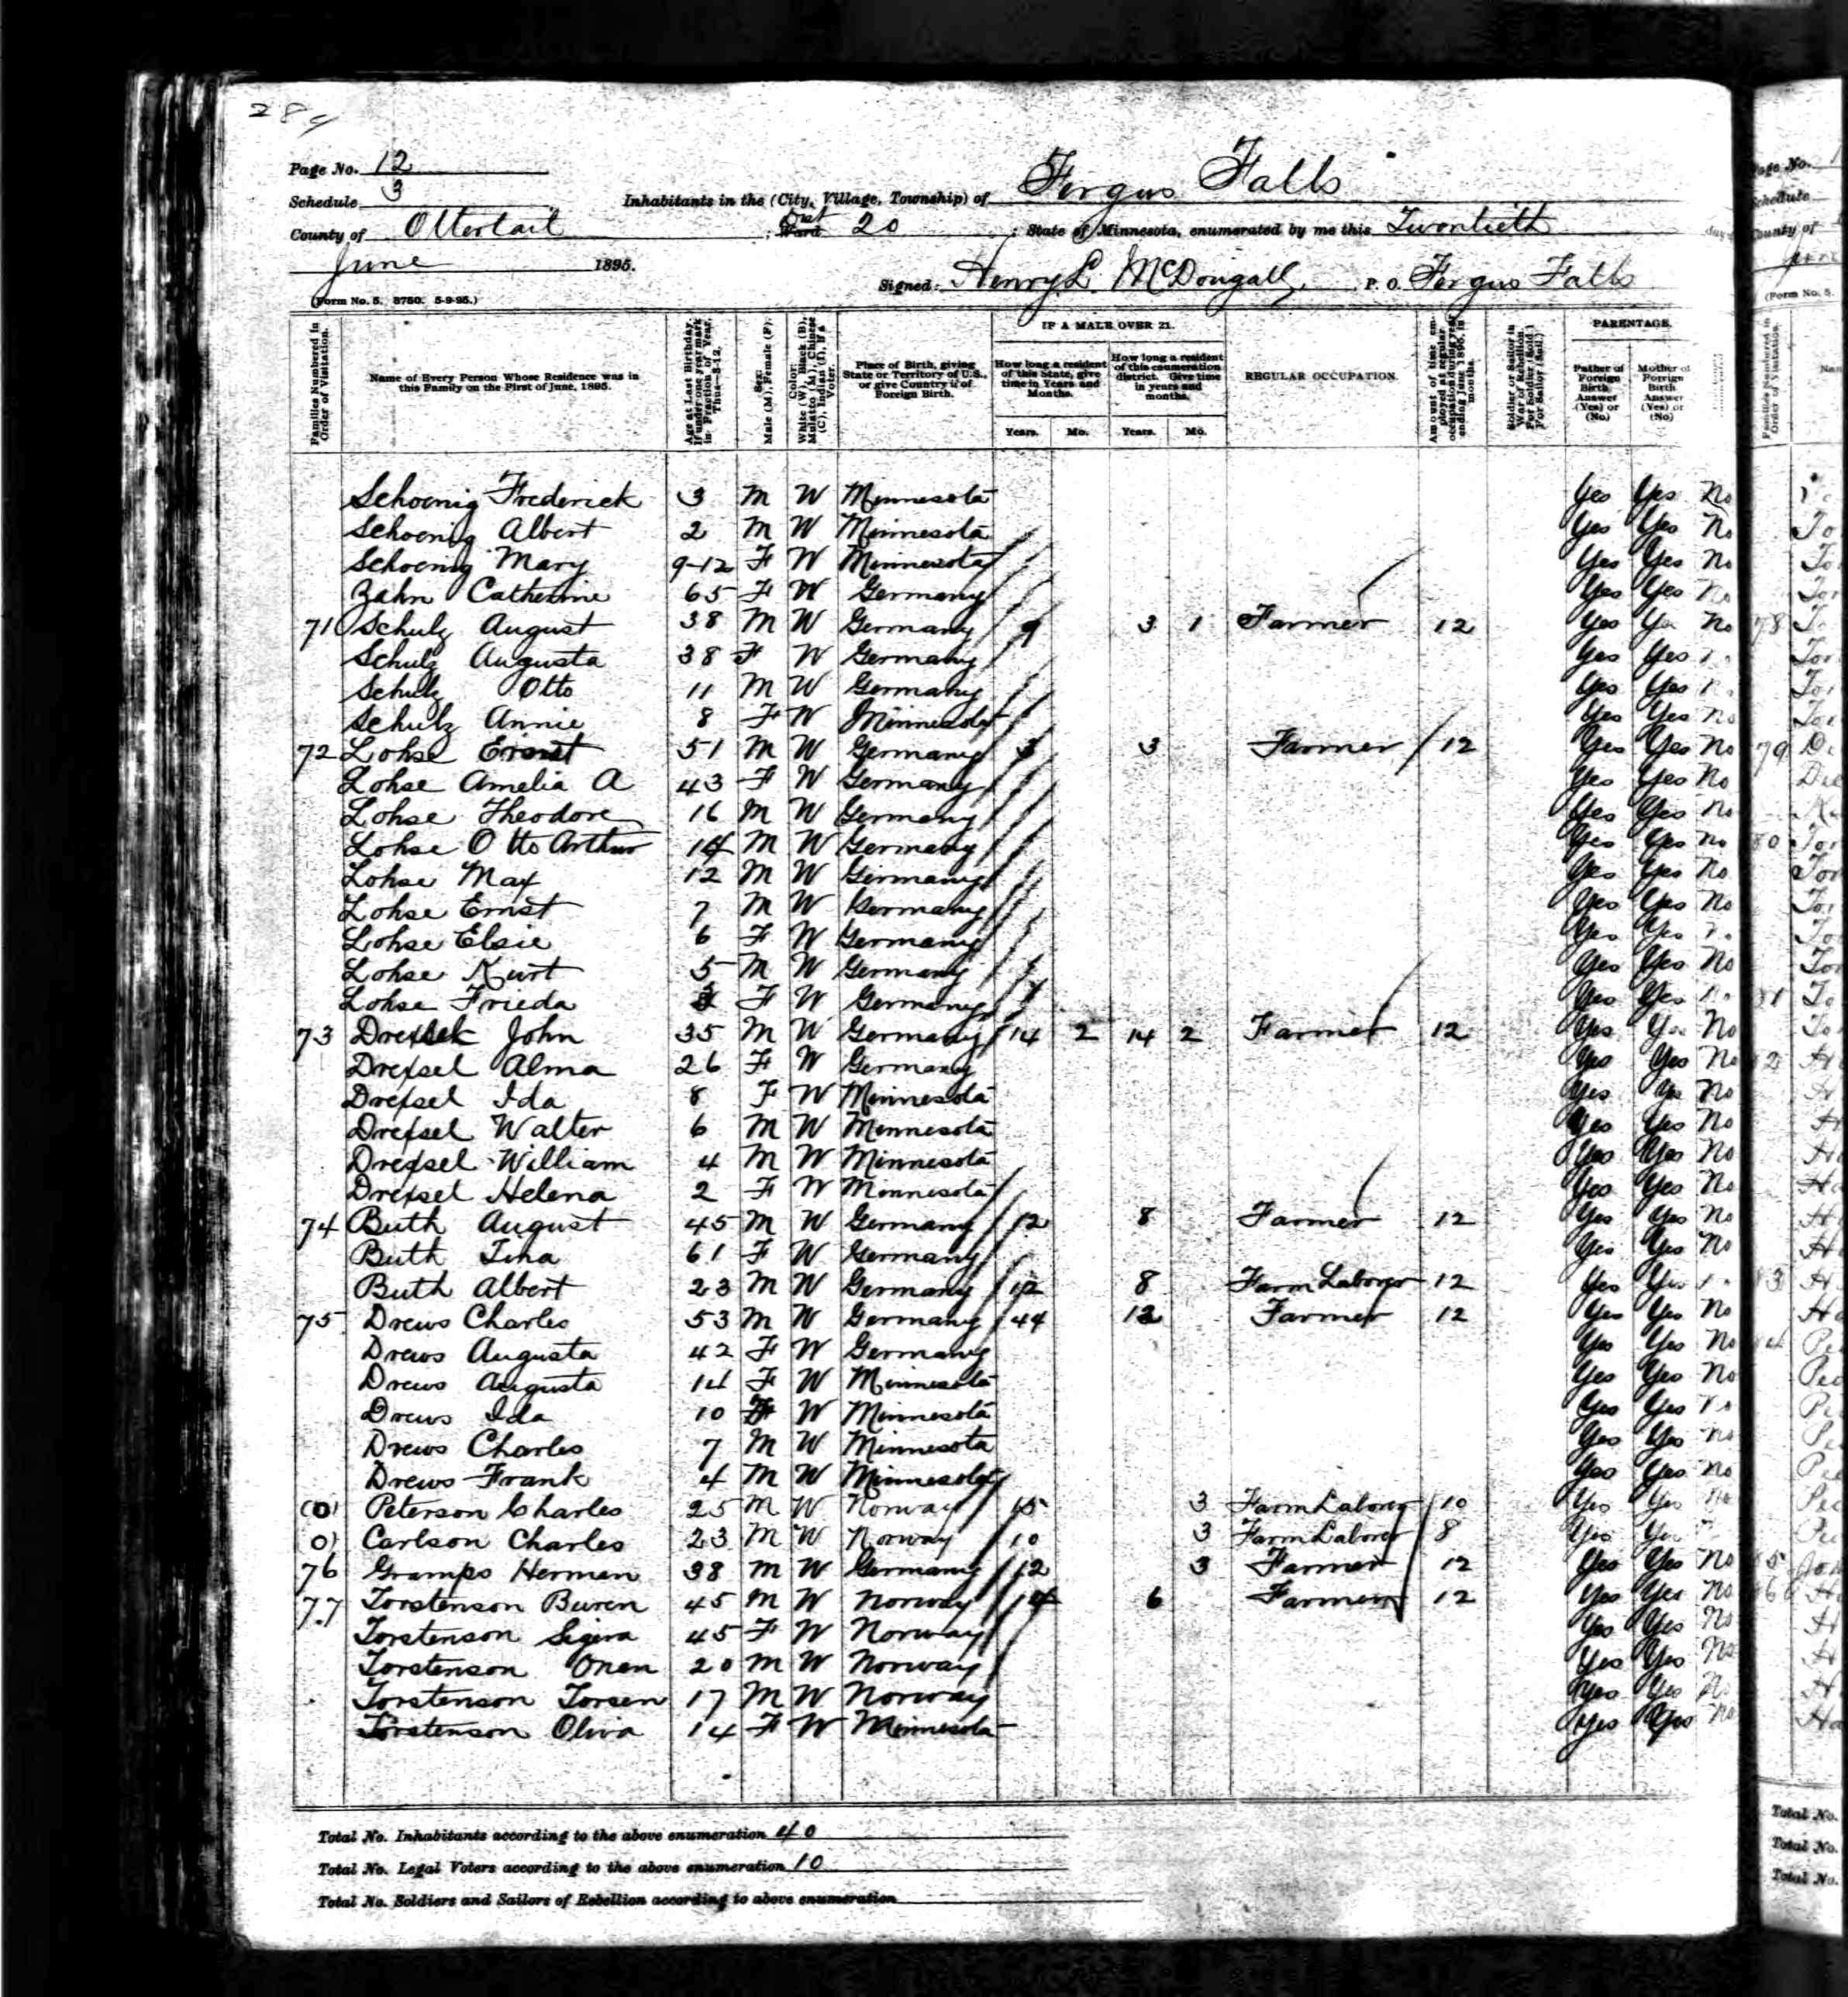 284
Page No. 12
Schedule 3 Inhabitants in the (City, Village, Township) of Fergus Falls
County of Ottertail ; Dist Ward 20 ; State of Minnesota, enumerated by me this Twentieth day
June 1895. Signed: Henry L. McDougall, P. O. Fergus Falls
(Form No. 5. 8750. 5-9-95.)
Families Numbered in Order of Visitation.
Name of Every Person Whose Residence was in this Family on the First of June, 1895.
Age at Last Birthday. If under one year mark in Fraction of Year, Thus—3-12.
Sex: Male (M), Female (F).
Color: White (W), Black (B), Mulatto (M), Chinese (C), Indian (I), If a Voter.
Place of Birth, giving State or Territory of U.S., or give Country if of Foreign Birth.
IF A MALE OVER 21.
How long a resident of this State, give time in Years and Months.
How long a resident of this enumeration district. Give time in years and months.
Years. Mo. Years. Mo.
REGULAR OCCUPATION.
Amount of time employed at regular occupation during year ending June 1, 1895, in months.
Soldier or Sailor in War of Rebellion. For Soldier (Sol.) For Sailor (Sail.)
PARENTAGE.
Father of Foreign Birth Answer (Yes) or (No)
Mother of Foreign Birth Answer (Yes) or (No)
Schoenig Frederick 3 M W Minnesota Yes Yes No
Schoenig Albert 2 M W Minnesota Yes Yes No
Schoenig Mary 9-12 F W Minnesota Yes Yes No
Zahn Catherine 65 F W Germany Yes Yes No
71 Schulz August 38 M W Germany 9 3 1 Farmer 12 Yes Yes No
Schulz Augusta 38 F W Germany Yes Yes
Schulz Otto 11 M W Germany Yes Yes
Schulz Annie 8 F W Minnesota Yes Yes No
72 Lohse Ernst 51 M W Germany 3 3 Farmer 12 Yes Yes No
Lohse Amelia A 43 F W Germany Yes Yes No
Lohse Theodore 16 M W Germany Yes Yes No
Lohse Otto Arthur 14 M W Germany Yes Yes No
Lohse Max 12 M W Germany Yes Yes No
Lohse Ernst 7 M W Germany Yes Yes No
Lohse Elsie 6 F W Germany Yes Yes
Lohse Kurt 5 M W Germany Yes Yes No
Lohse Frieda F W Germany Yes Yes
73 John 35 M W Germany 14 2 14 2 Farmer 12 Yes Yes No
Drexsel Alma 26 F W Germany Yes Yes No
Drexsel Ida 8 F W Minnesota Yes Yes No
Drexsel Walter 6 M W Minnesota Yes Yes No
Drexsel William 4 M W Minnesota Yes Yes No
Drexsel Helena 2 F W Minnesota Yes Yes No
74 Buth August 45 M W Germany 12 8 Farmer 12 Yes Yes No
Buth Tina 61 F W Germany Yes Yes No
Buth Albert 23 M W Germany 12 8 Farm Laborer 12 Yes Yes
75 Drews Charles 53 M W Germany 44 12 Farmer 12 Yes Yes No
Drews Augusta 42 F W Germany Yes Yes No
Drews Augusta 14 F W Minnesota Yes Yes No
Drews Ida 10 F W Minnesota Yes Yes No
Drews Charles 7 M W Minnesota Yes Yes No
Drews Frank 4 M W Minnesota Yes Yes No
(0) Peterson Charles 25 M W Norway 15 3 Farm Laborer 10 Yes Yes No
0) Carlson Charles 23 M W Norway 10 3 Farm Laborer 8 Yes Yes
76 Gramps Herman 38 M W Germany 12 3 Farmer 12 Yes Yes No
77 Torstenson Buren 45 M W Norway 14 6 Farmer 12 Yes Yes No
Torstenson Sigera 45 F W Norway Yes Yes No
Torstenson Onen 20 M W Norway Yes Yes No
Torstenson Torsen 17 M W Norway Yes Yes No
Torstenson Oliva 14 F W Minnesota Yes Yes No
Total No. Inhabitants according to the above enumeration 40
Total No. Legal Voters according to the above enumeration 10
Total No. Soldiers and Sailors of Rebellion according to above enumeration